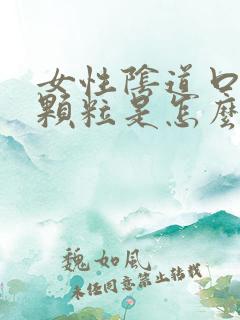 女性陰道口
顆粒是怎麼
魏如風
未經同意禁止轉載